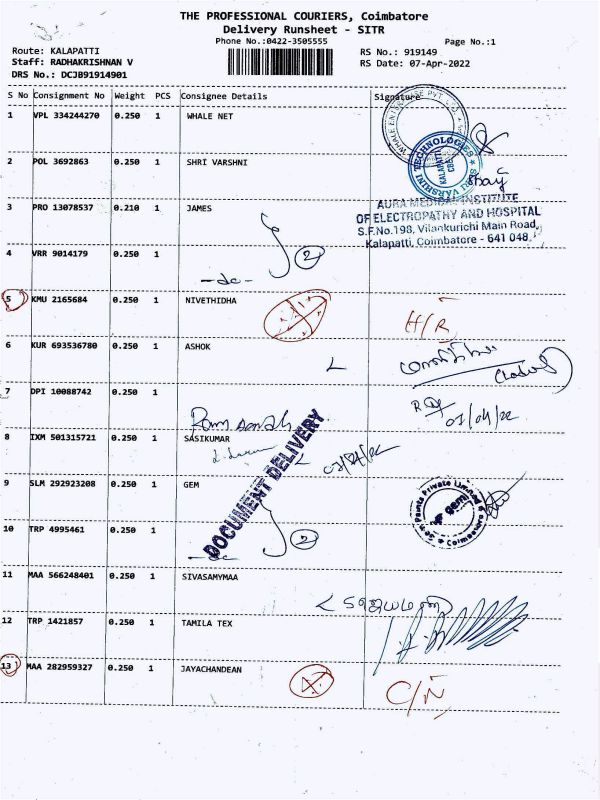 THE PROFESSIONAL COURIERS, Coimbatore
Delivery Runsheet - SITR
Phone No.:0422-3505555
Page No.:1
Route: KALAPATTI
RS No.: 919149
Staff: RADHAKRISHNAN V
RS Date: 07-Apr-2022
DRS No.: DCJB91914901
S No Consignment No Weight PCS Consignee Details Signature
1 VPL 334244270 0.250 1 WHALE NET
2 POL 3692863 0.250 1 SHRI VARSHNI
SRI VARSHINI TECHNOLOGIES
KALAPATTI
CBE
3 PRO 13078537 0.210 1 JAMES
AURA MEDICAL INSTITUTE
OF ELECTROPATHY AND HOSPITAL
S.F.No.198, Vilankurichi Main Road,
Kalapatti, Coimbatore - 641 048
4 VRR 9014179 0.250 1
2
-dc-
5 KMU 2165684 0.250 1 NIVETHIDHA
H/R
6 KUR 693536780 0.250 1 ASHOK
7 DPI 10088742 0.250 1
07/04/22
8 IXM 501315721 0.250 1 SASIKUMAR
DOCUMENT DELIVERY
9 SLM 292923208 0.250 1 GEM
gem
10 TRP 4995461 0.250 1
2
-dc
11 MAA 566248401 0.250 1 SIVASAMYMAA
12 TRP 1421857 0.250 1 TAMILA TEX
13 MAA 282959327 0.250 1 JAYACHANDEAN
C/N